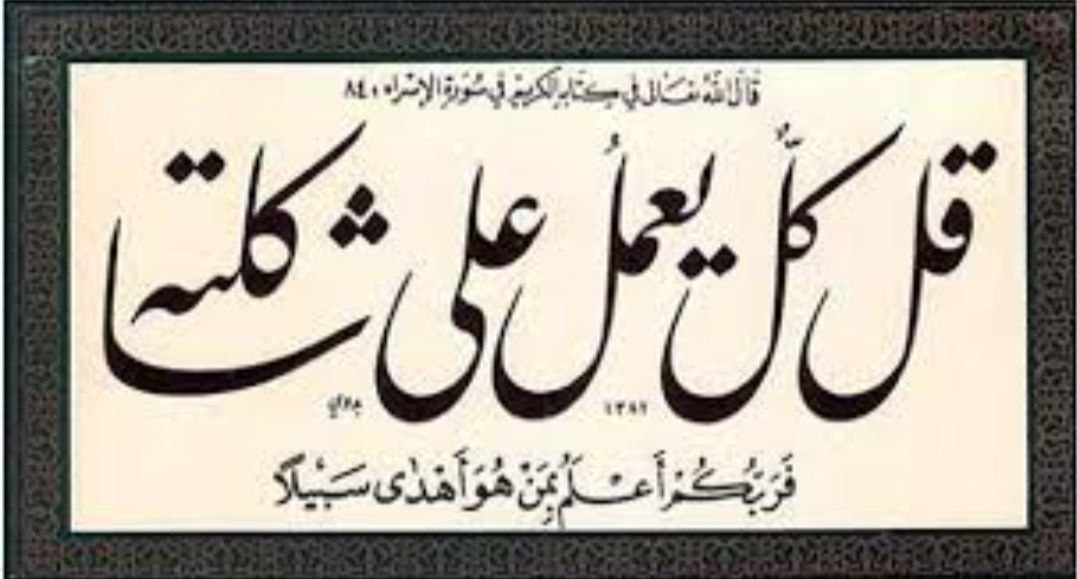 قال الله تعالى في كتابه الكريم في سورة الإسراء ٨٤
قل كلٌّ يعملُ على شاكلته
١٣٨٢
فَرَبُّكُمْ أَعْلَمُ بِمَنْ هُوَ أَهْدٰى سَبِيْلًا